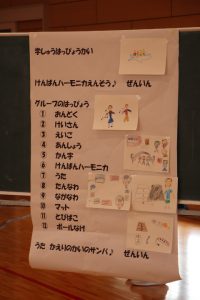 学しゅうはっぴょうかい
けんばんハーモニカえんそう♪ ぜんいん
グループのはっぴょう
① おんどく
② けいさん
③ えいご
④ あんしょう
⑤ かん字
⑥ けんばんハーモニカ
⑦ うた
⑧ たんなわ
⑨ ながなわ
⑩ マット
⑪ とびばこ
⑫ ボールなげ
うた かえりのかいのサンバ♪ ぜんいん